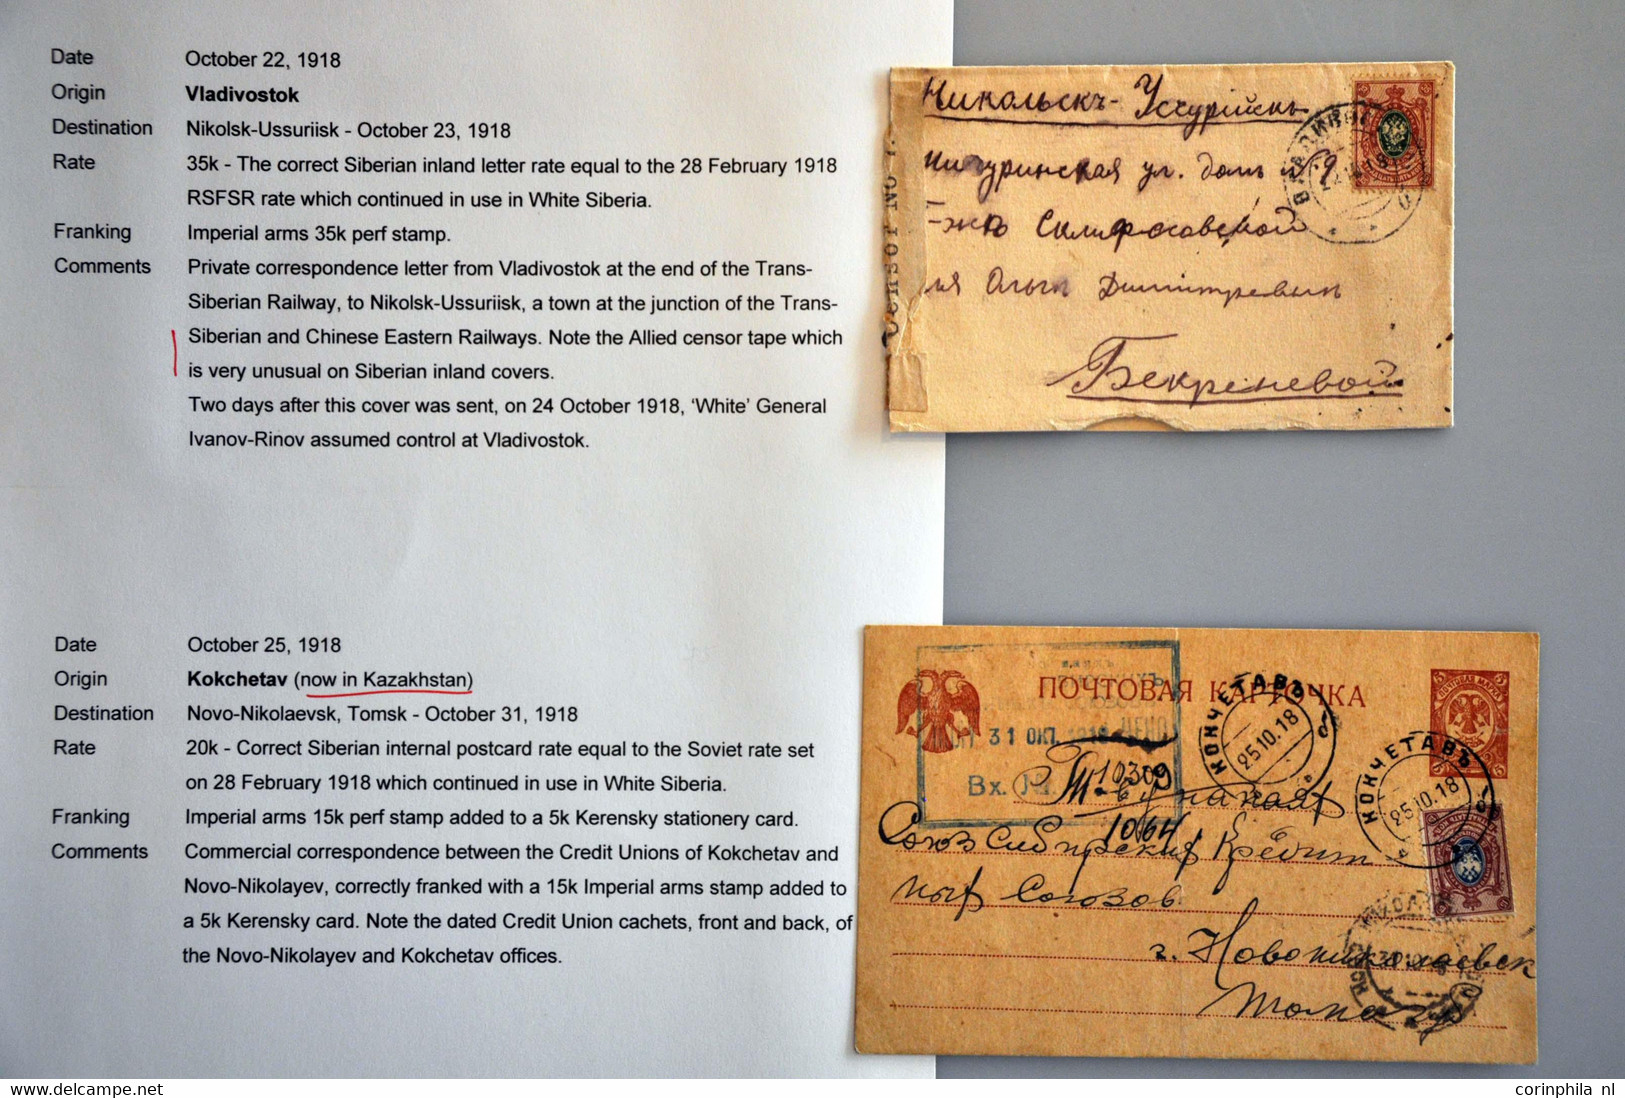 Date October 22, 1918
Origin Vladivostok
Destination Nikolsk-Ussuriisk - October 23, 1918
Rate 35k - The correct Siberian inland letter rate equal to the 28 February 1918
RSFSR rate which continued in use in White Siberia.
Franking Imperial arms 35k perf stamp.
Comments Private correspondence letter from Vladivostok at the end of the Trans-
Siberian Railway, to Nikolsk-Ussuriisk, a town at the junction of the Trans-
Siberian and Chinese Eastern Railways. Note the Allied censor tape which
is very unusual on Siberian inland covers.
Two days after this cover was sent, on 24 October 1918, ‘White’ General
Ivanov-Rinov assumed control at Vladivostok.
Никольскъ-Уссурійскъ
ул. домъ №9
Ольги Димитревны
Бекреневой
Censor No
Date October 25, 1918
Origin Kokchetav (now in Kazakhstan)
Destination Novo-Nikolaevsk, Tomsk - October 31, 1918
Rate 20k - Correct Siberian internal postcard rate equal to the Soviet rate set
on 28 February 1918 which continued in use in White Siberia.
Franking Imperial arms 15k perf stamp added to a 5k Kerensky stationery card.
Comments Commercial correspondence between the Credit Unions of Kokchetav and
Novo-Nikolayev, correctly franked with a 15k Imperial arms stamp added to
a 5k Kerensky card. Note the dated Credit Union cachets, front and back, of
the Novo-Nikolayev and Kokchetav offices.
ПОЧТОВАЯ КАРТОЧКА
КОКЧЕТАВЪ
25.10.18
КОКЧЕТАВЪ
25.10.18
31 ОКТ. 1918
Вх. №
10309
1064
Союз Сибирских Кредит
ных Союзов
г. Новониколаевск
corinphila nl